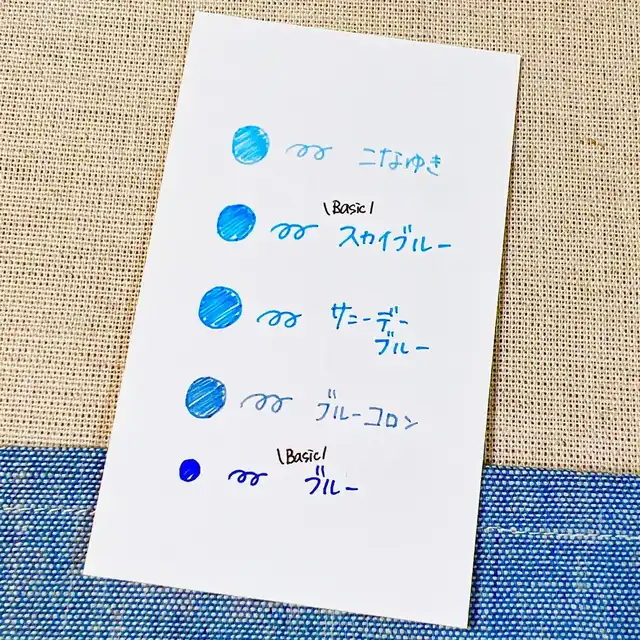 こなゆき
\Basic/
スカイブルー
サニーデー
ブルー
ブルーコロン
\Basic/
ブルー